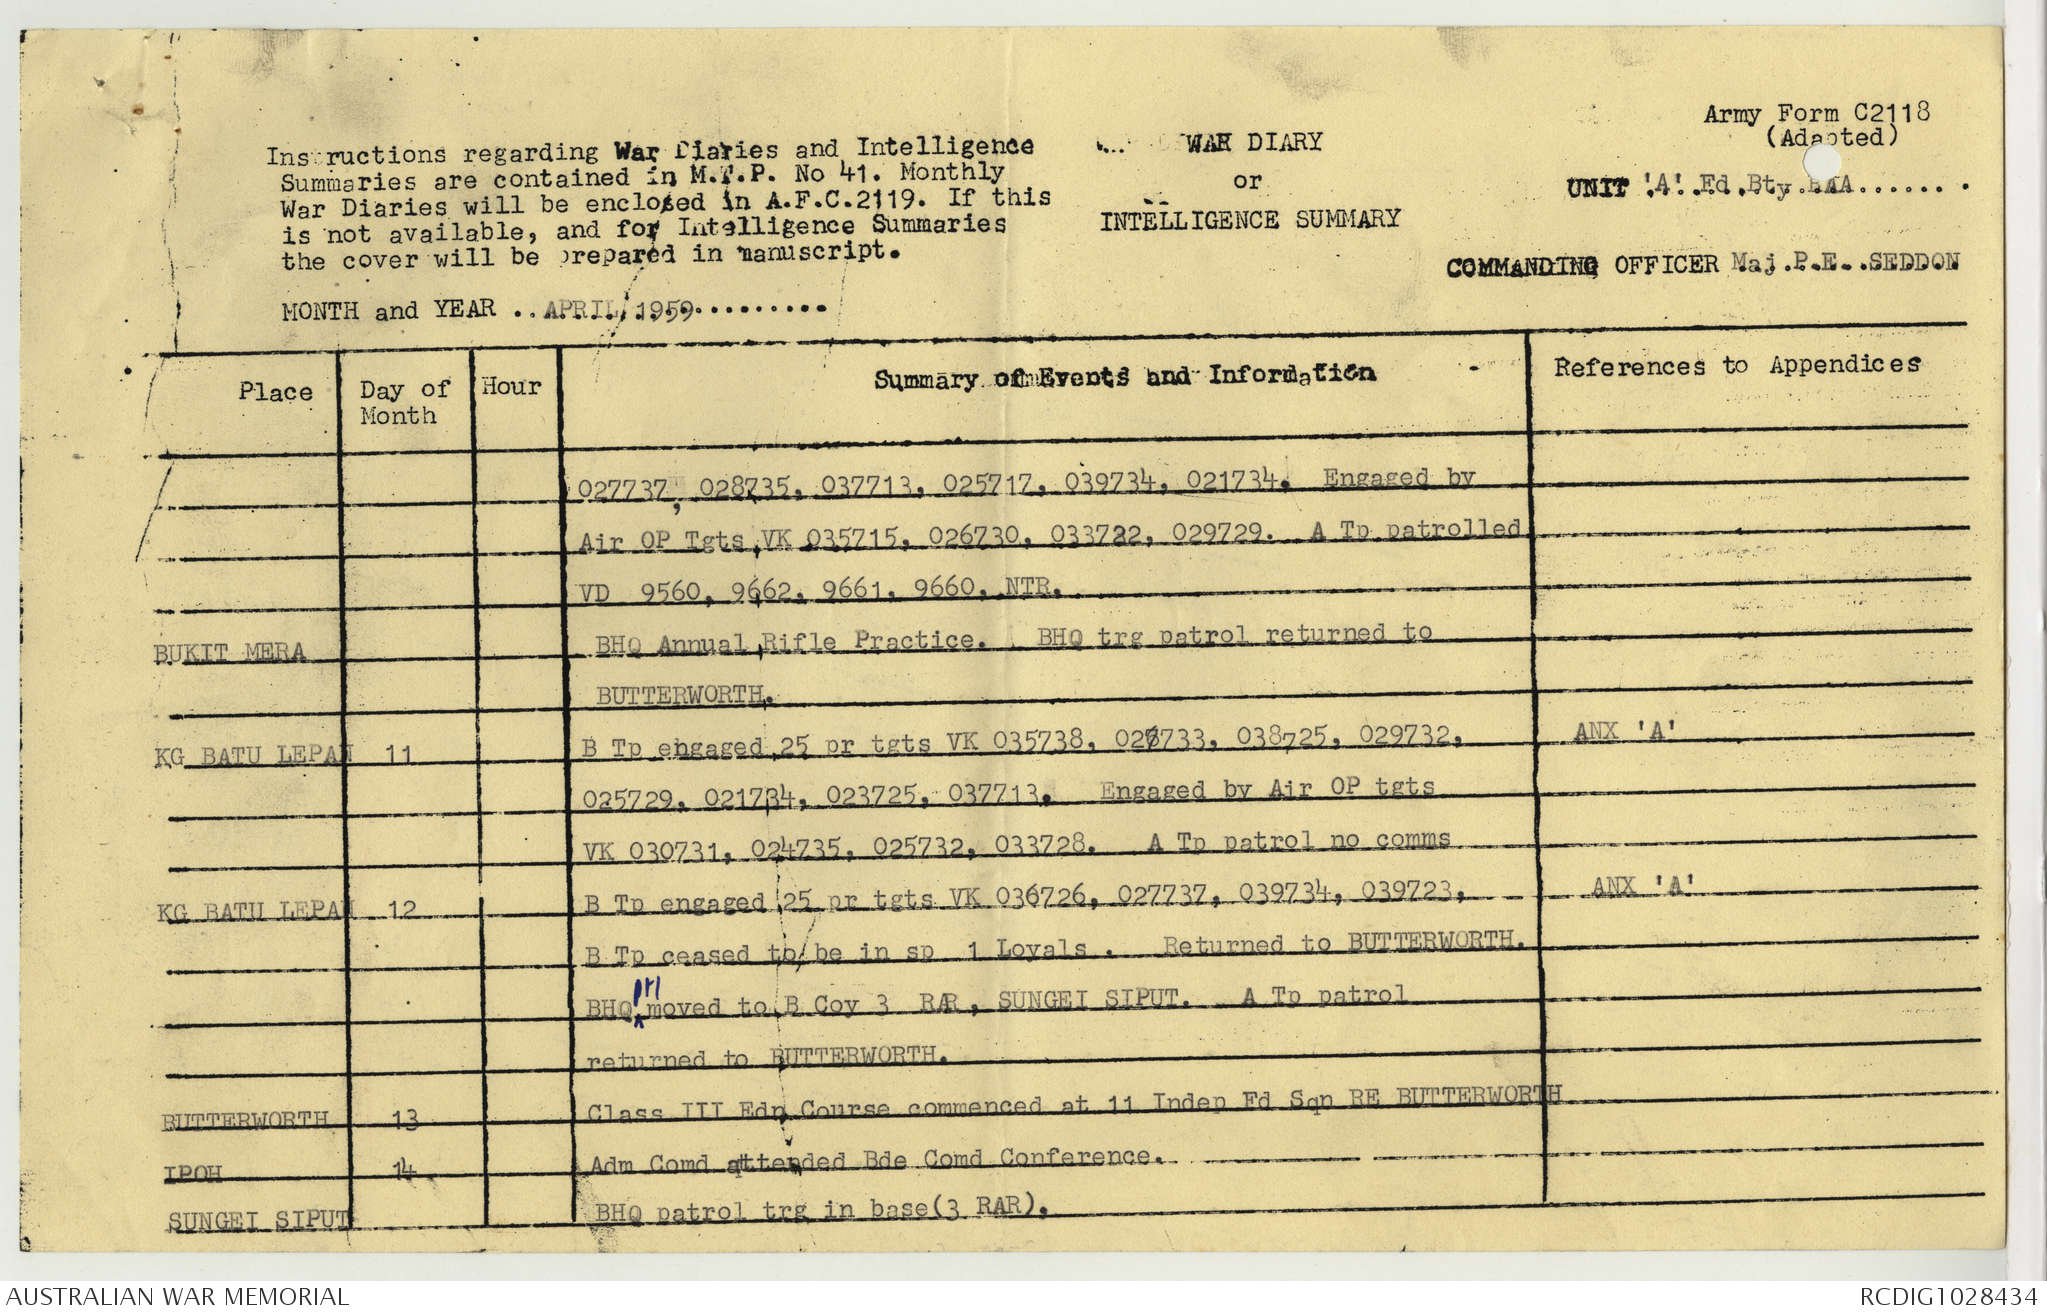 Army Form C2118
(Adapted)
Instructions regarding War Diaries and Intelligence
Summaries are contained in M.T.P. No 41. Monthly
War Diaries will be enclosed in A.F.C.2119. If this
is not available, and for Intelligence Summaries
the cover will be prepared in manuscript.
MONTH and YEAR .. APRIL, 1959..........
WAR DIARY
or
INTELLIGENCE SUMMARY
UNIT 'A' Fd Bty RAA.......
COMMANDING OFFICER Maj.P.E..SEDDON
Place Day of Month Hour Summary of Events and Information References to Appendices
027737, 028735, 037713, 025717, 039734, 021734. Engaged by
Air OP Tgts VK 035715, 026730, 033722, 029729. A Tp patrolled
VD 9560, 9662, 9661, 9660, NTR.
BUKIT MERA BHQ Annual Rifle Practice. BHQ trg patrol returned to
BUTTERWORTH.
KG BATU LEPAH 11 B Tp engaged 25 pr tgts VK 035738, 028733, 038725, 029732, ANX 'A'
025729, 021734, 023725, 037713. Engaged by Air OP tgts
VK 030731, 024735, 025732, 033728. A Tp patrol no comms
KG BATU LEPAH 12 B Tp engaged 25 pr tgts VK 036726, 027737, 039734, 039723, ANX 'A'
B Tp ceased to be in sp 1 Loyals . Returned to BUTTERWORTH.
BHQ ptl moved to B Coy 3 RAR, SUNGEI SIPUT. A Tp patrol
returned to BUTTERWORTH.
BUTTERWORTH 13 Class III Edn Course commenced at 11 Indep Fd Sqn RE BUTTERWORTH
IPOH 14 Adm Comd attended Bde Comd Conference.
SUNGEI SIPUT BHQ patrol trg in base(3 RAR).
AUSTRALIAN WAR MEMORIAL
RCDIG1028434